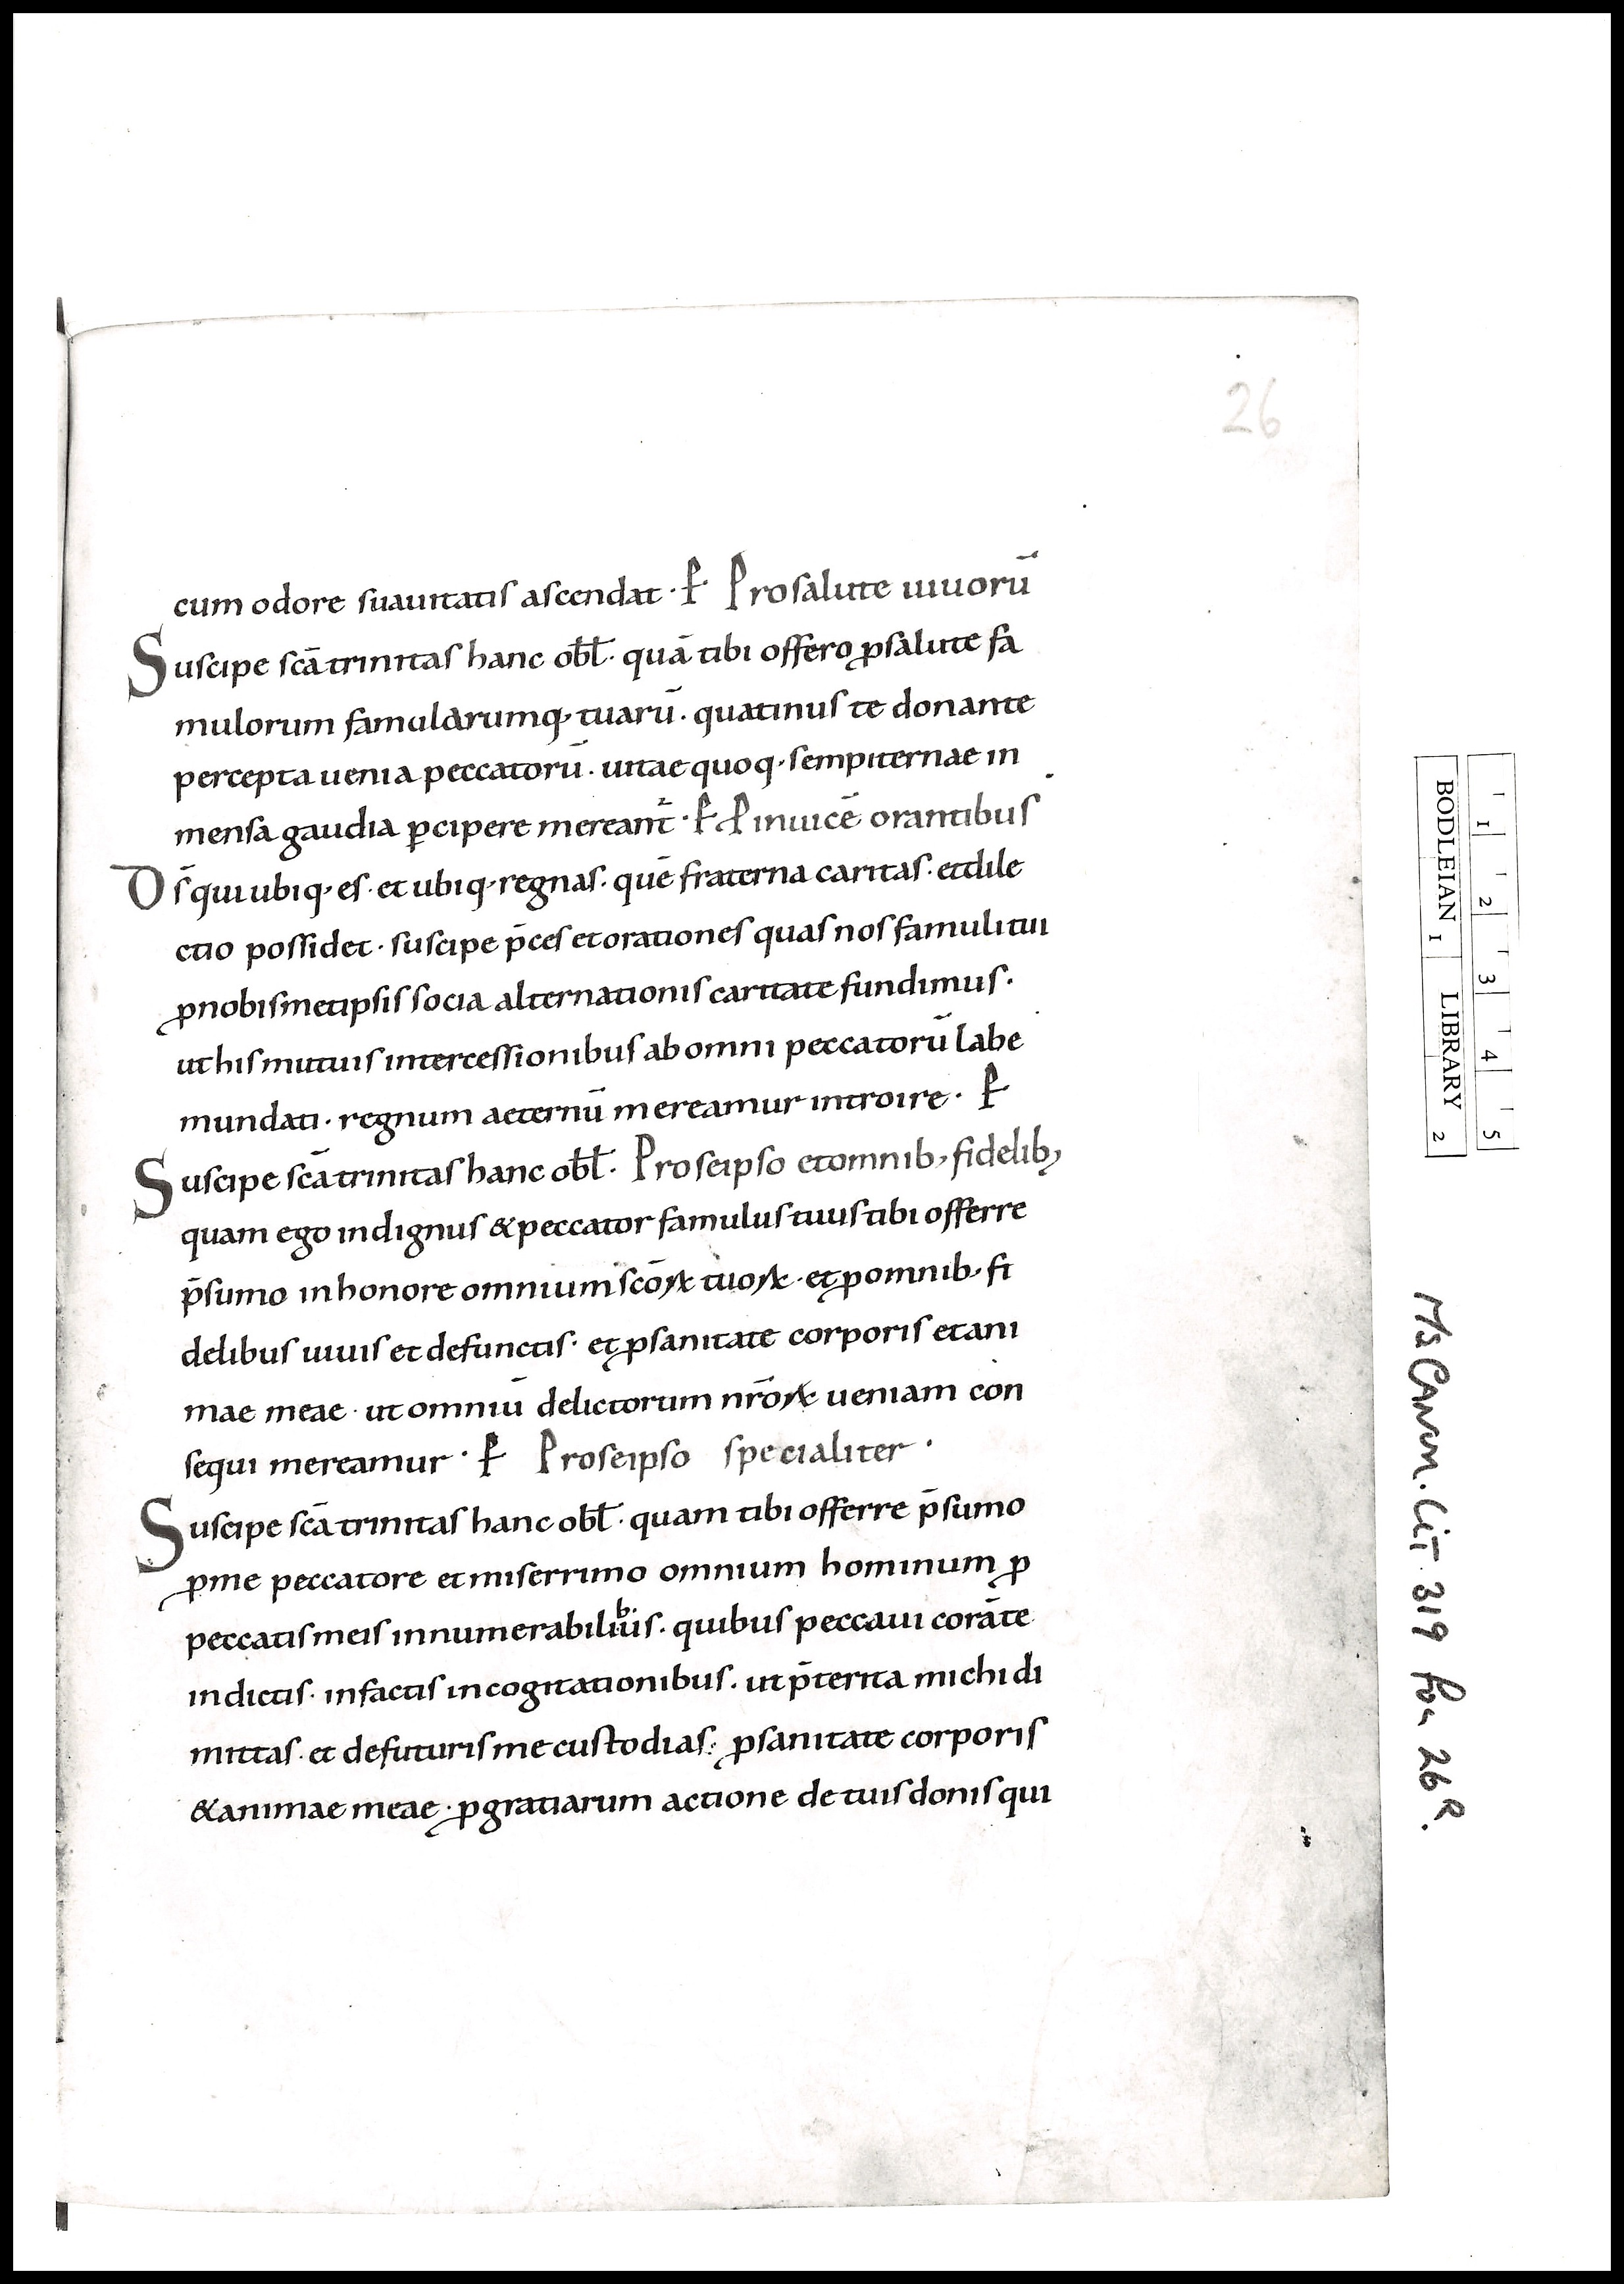 26
cum odore suauitatis ascendat · P̵ Pro salute uiuorū
Suscipe scā trinitas hanc obł · quā tibi offero ꝓ salute fa
mulorum famularumq; tuarū · quatinus te donante
percepta uenia peccatorū · uitae quoq; sempiternae in
mensa gaudia ꝑcipere mereant̄ · P̵ P inuicē orantibus
Ds̄ qui ubiq; es · et ubiq; regnas · quē fraterna caritas · et dile
ctio possidet · suscipe p̄ces et orationes quas nos famuli tui
ꝓ nobismetipsis socia alternationis caritate fundimus ·
ut his mutuis intercessionibus ab omni peccatorū labe
mundati · regnum aeternū mereamur introire · P̵
Suscipe scā trinitas hanc obł · Pro seipso et omnib; fidelib;
quam ego indignus & peccator famulus tuus tibi offerre
p̄sumo in honore omnium scōꝝ tuoꝝ · et ꝓ omnib; fi
delibus uiuis et defunctis · et ꝓ sanitate corporis et ani
mae meae · ut omniū delictorum nr̄oꝝ ueniam con
sequi mereamur · P̵ Pro seipso specialiter ·
Suscipe scā trinitas hanc obł · quam tibi offerre p̄sumo
ꝓ me peccatore et miserrimo omnium hominum ꝓ
peccatis meis innumerabilibus · quibus peccaui corā te
in dictis · in factis in cogitationibus · ut p̄terita michi di
mittas · et de futuris me custodias · ꝓ sanitate corporis
& animae meae · ꝓ gratiarum actione de tuis donis qui
BODLEIAN LIBRARY
1 2
1 2 3 4 5
Ms Canon. Lit. 319 for 26R.